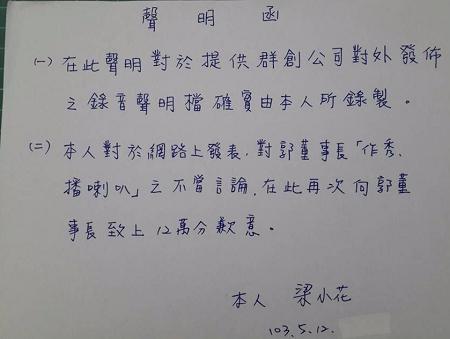 聲明函
(一) 在此聲明對於提供群創公司對外發佈
之錄音聲明擋確實由本人所錄製。
(二) 本人對於網路上發表，對郭董事長「作秀、
播喇叭」之不當言論，在此再次向郭董
事長致上12萬分歉意。
本人 梁小花
103.5.12.